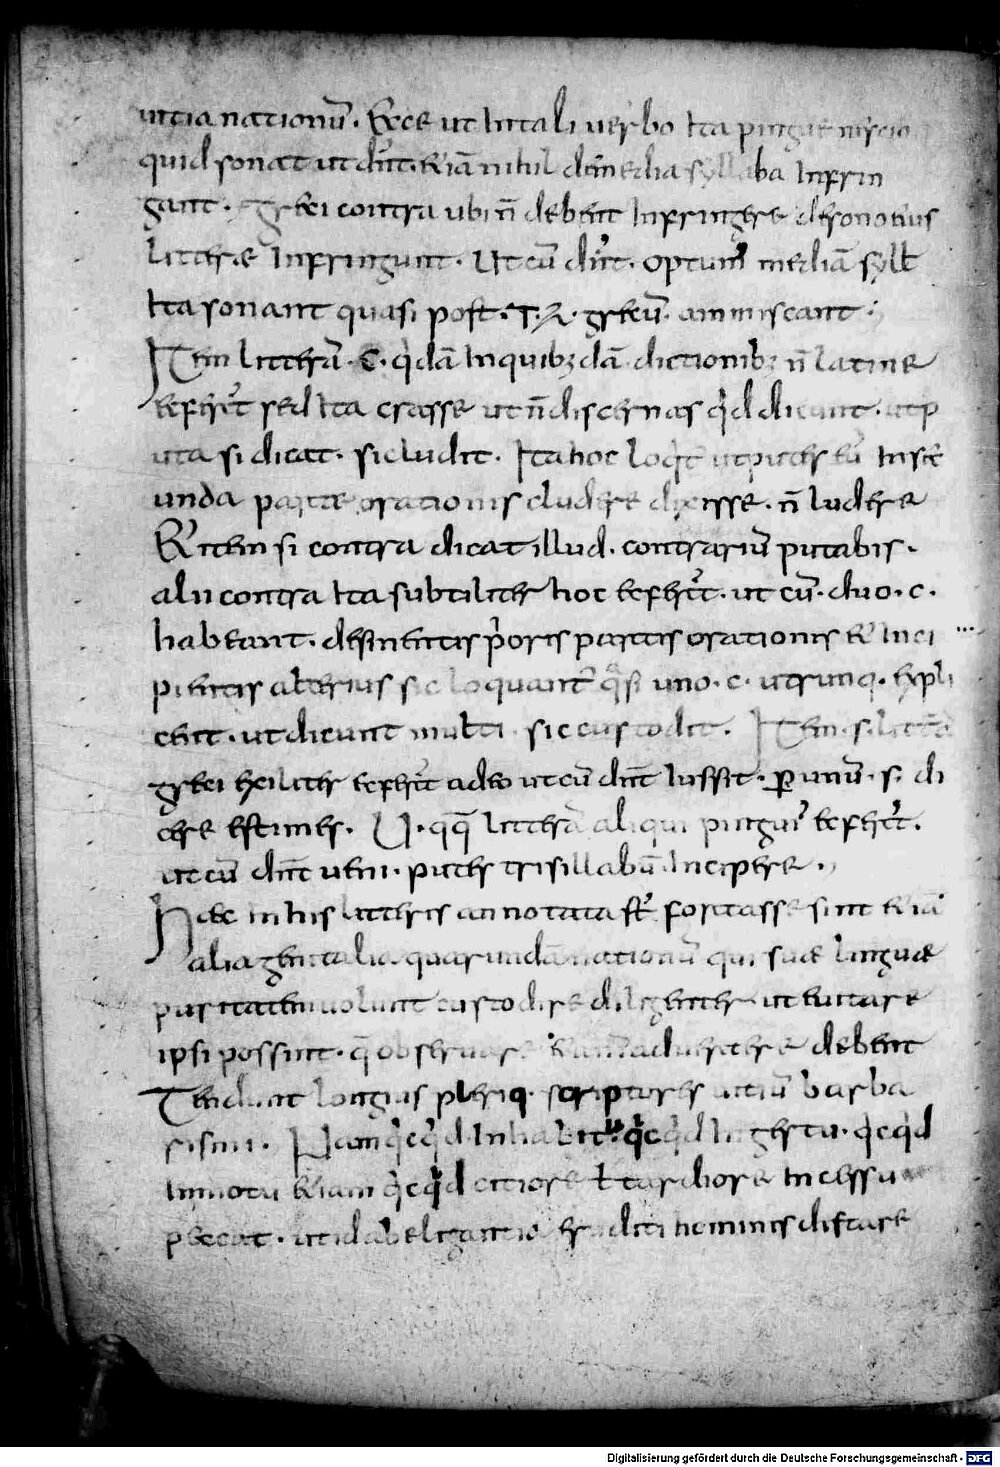 uitia nationū. Ecce ut in tali uerbo ita pingue nescio
quid sonat ut dic̄t. etiā nihil d̄ media syllaba infrin
gant. greci contra ubi n̄ debent infringere de sono eius
litterae infringunt. Ut cū dic̄t. optimus mediā syll̄
ita sonant quasi post .T. Z. grecū. ammisceant.
Item litterā .C. q̇dā in quibꝫdā dictionibꝫ n̄ latine
ecferūt sed ita crasse ut n̄ discernas q̇d dicunt. utp
uta si dicat. sic ludit. Ita hoc loq̇t̄ ut putes eū in sec̄
unda parte orationis cludere dixisse. n̄ ludere
Et item si contra dicat illud. contrariū putabis.
alii contra ita subtiliter hoc ecferūt. ut cū. duo. c.
habeant. desinentis p̍oris partis orationis et inci
pientis alterius sic loquant̄ q̃si uno. c. utrunq. expli
cent. ut dicunt multi. sic custodit. Item .s. litterā
greci exiliter ecferūt adeo ut cū dic̄t iussit. ꝑ unū. s. di
cere estimes. U. qq̄ litterā aliqui pinguiꝰ ecferūt.
ut cū dic̄t ueni. putes trisillabū incipere.
Haec in his litteris annotata st̄. fortasse sint etiā
alia gentalia quarundā nationū qui suae linguae
puritatem uolunt custodire diligenter ut euitare
ipsi possint. q̄ obseruare etiā aduertere debent
Tendunt longius pleriq. scriptores uitiū barba
rismi. Nam q̇cq̇d in habitu. q̇cq̇d in gestu. q̇cq̇d
in motu etiam q̇cq̇d citiore ł tardiore incessu
peccat. ut id ab elegantia eruditi hominis distare